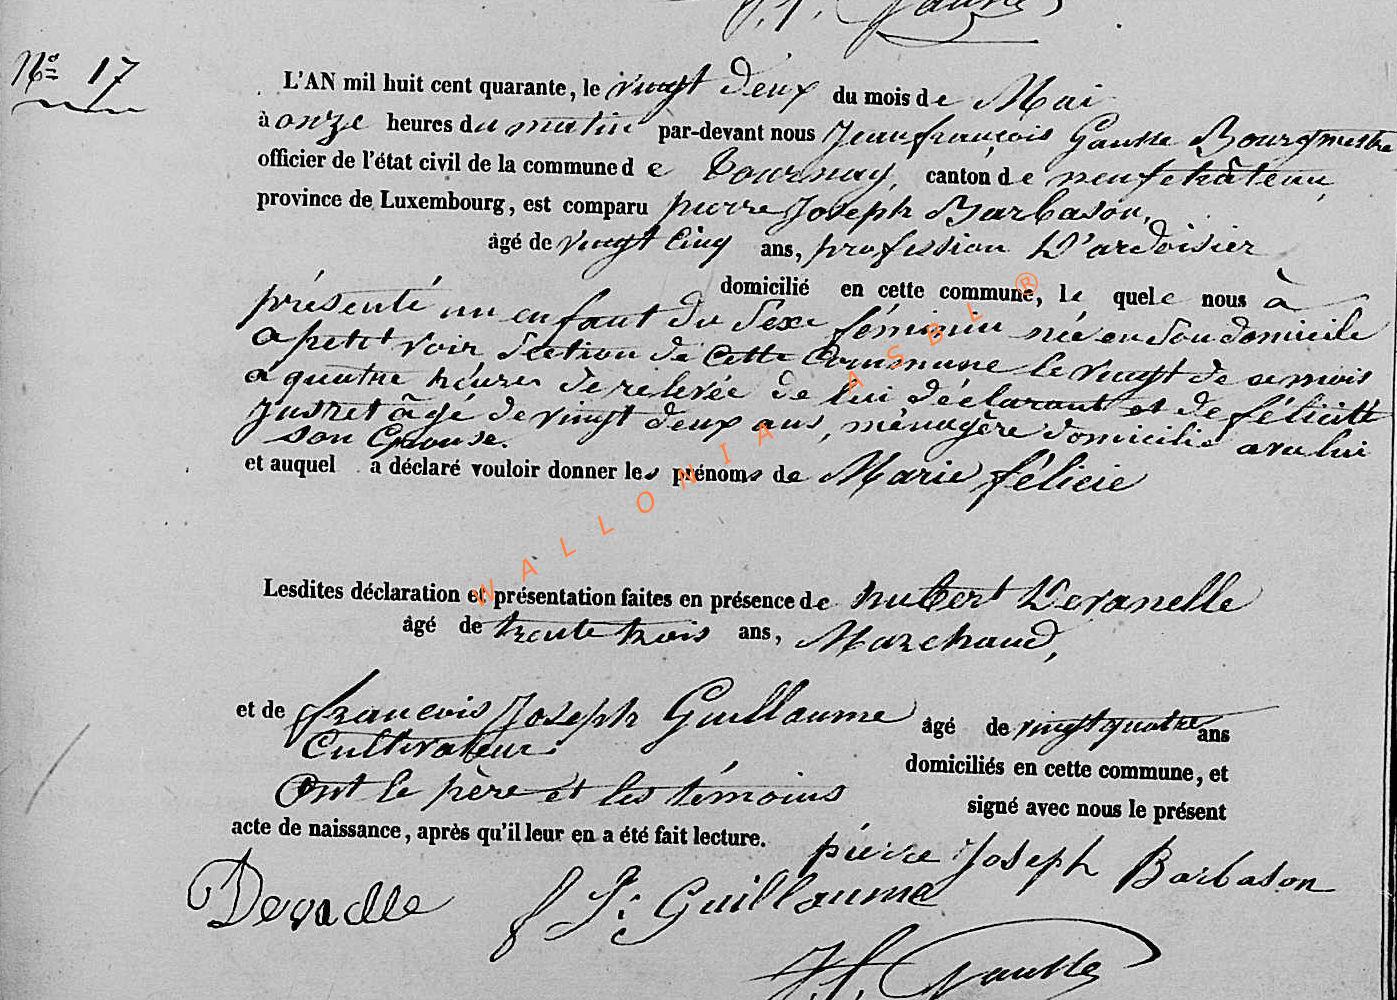 J. f. Gausse
N° 17
L'AN mil huit cent quarante, le vingt deux du mois de Mai
à onze heures du matin par-devant nous Jean françois Gausse Bourgmestre
officier de l'état civil de la commune de Tournay, canton de neufchâteau,
province de Luxembourg, est comparu pierre Joseph Barbason,
âgé de vingt Cinq ans, profession D'ardoisier
domicilié en cette commune, le quel e nous à
présenté un enfant du Sexe féminin née en Son domicile
a petit voir Section de Cette Commune le vingt de ce mois
a quatre heures de relevée de lui déclarant et de félicité
Justret âgé de vingt deux ans, ménagère domicilié avec lui
son Epouse.
et auquel a déclaré vouloir donner les prénoms de Marie félicie
Lesdites déclaration et présentation faites en présence de hubert
âgé de trente trois ans, Marchand,
et de françois Joseph Guillaume âgé de vingt quatre ans
Cultivateur.
domiciliés en cette commune, et
Ont le père et les témoins signé avec nous le présent
acte de naissance, après qu'il leur en a été fait lecture.
pierre Joseph Barbason
f J: Guillaume
J. f. Gausse
WALLONIA ASBL ®